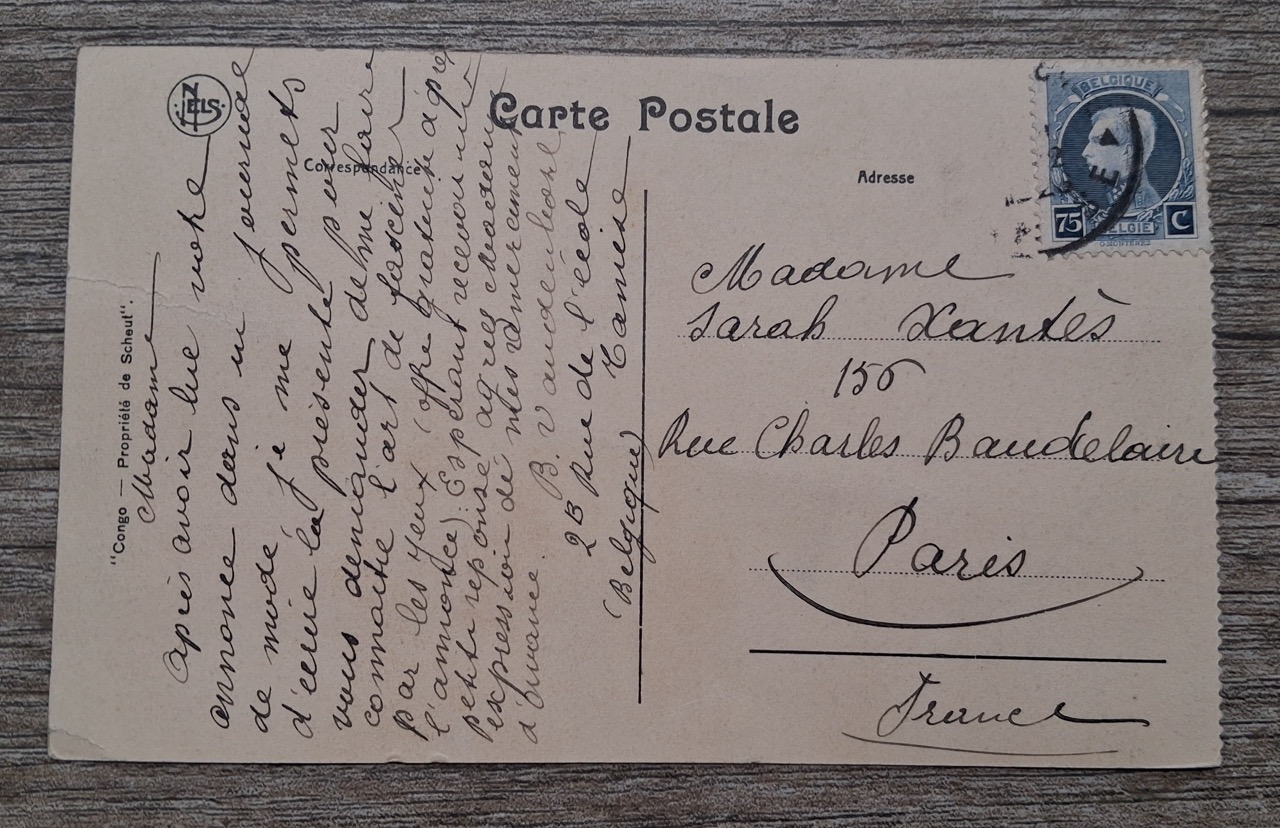 NELS
Carte Postale
Correspondance
Adresse
"Congo — Propriété de Scheut".
Madame
Après avoir lue votre
annonce dans un journal
de mode je me permets
d'ecrire la présente pour
vous demander de me faire
connaitre l'art de fasciner
par les yeux (offre gratuite après
l'annonce) Espérant recevoir une
petite reponse agrées Madame
l'expression de mes Sincerement
d'avance. B. Vandenbosch
2B Rue de l'école
Tamise
(Belgique)
BELGIQUE
75 C
BELGIE
Madame
Sarah Xantès
156
Rue Charles Baudelaire
Paris
France